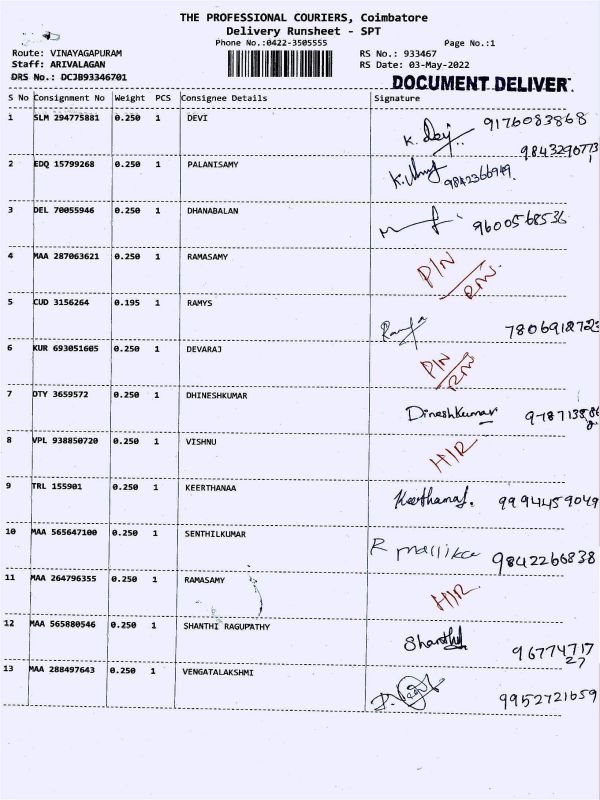 THE PROFESSIONAL COURIERS, Coimbatore
Delivery Runsheet - SPT
Phone No.:0422-3505555 Page No.:1
Route: VINAYAGAPURAM RS No.: 933467
Staff: ARIVALAGAN RS Date: 03-May-2022
DRS No.: DCJB93346701 DOCUMENT DELIVER.
S No Consignment No Weight PCS Consignee Details Signature
1 SLM 294775881 0.250 1 DEVI K. Devi 9176083868
9843290773
2 EDQ 15799268 0.250 1 PALANISAMY 9842366949
3 DEL 70055946 0.250 1 DHANABALAN 9600568536
4 MAA 287063621 0.250 1 RAMASAMY PIN/RM
5 CUD 3156264 0.195 1 RAMYS 7806918723
6 KUR 693051605 0.250 1 DEVARAJ PIN/RM
7 DTY 3659572 0.250 1 DHINESHKUMAR Dineshkumar
8 VPL 938850720 0.250 1 VISHNU HIR
9 TRL 155901 0.250 1 KEERTHANAA 9994459049
10 MAA 565647100 0.250 1 SENTHILKUMAR R mallika 9842266838
11 MAA 264796355 0.250 1 RAMASAMY HIR
12 MAA 565880546 0.250 1 SHANTHI RAGUPATHY Shanthi 96774717
27
13 MAA 288497643 0.250 1 VENGATALAKSHMI 9952721659